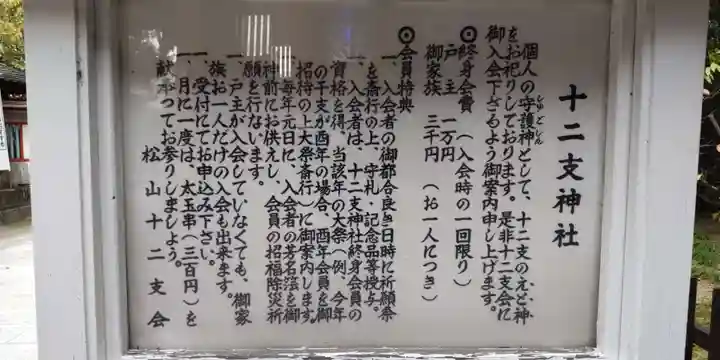 十二支神社
個人の守護神として、十二支のえと神
しゅごじん
をお祀りしております。是非十二支会に
御入会下さるよう御案内申し上げます。
◎終身会費 (入会時の一回限り)
戸主 一万円
御家族 三千円 (お一人につき)
◎会員特典
一、入会者の御都合良き日時に祈願祭
を斎行の上、守札・記念品等授与。
一、入会者は、十二支神社終身会員の
資格を得、当該年の大祭(例、今年
の干支が酉年の場合、酉年会員を御
招待の上大祭斎行)に御案内します。
一、毎年元旦に、入会者の芳名簿を御
神前にお供えし、会員の招福除災祈
願を行ないます。
一、戸主が入会していなくても、御家
族お一人だけの入会も出来ます。
一、受付にてお申込み下さい。
一、月に一度は、太玉串(三百円)を
献奉つてお参りしましょう。
松山十二支会